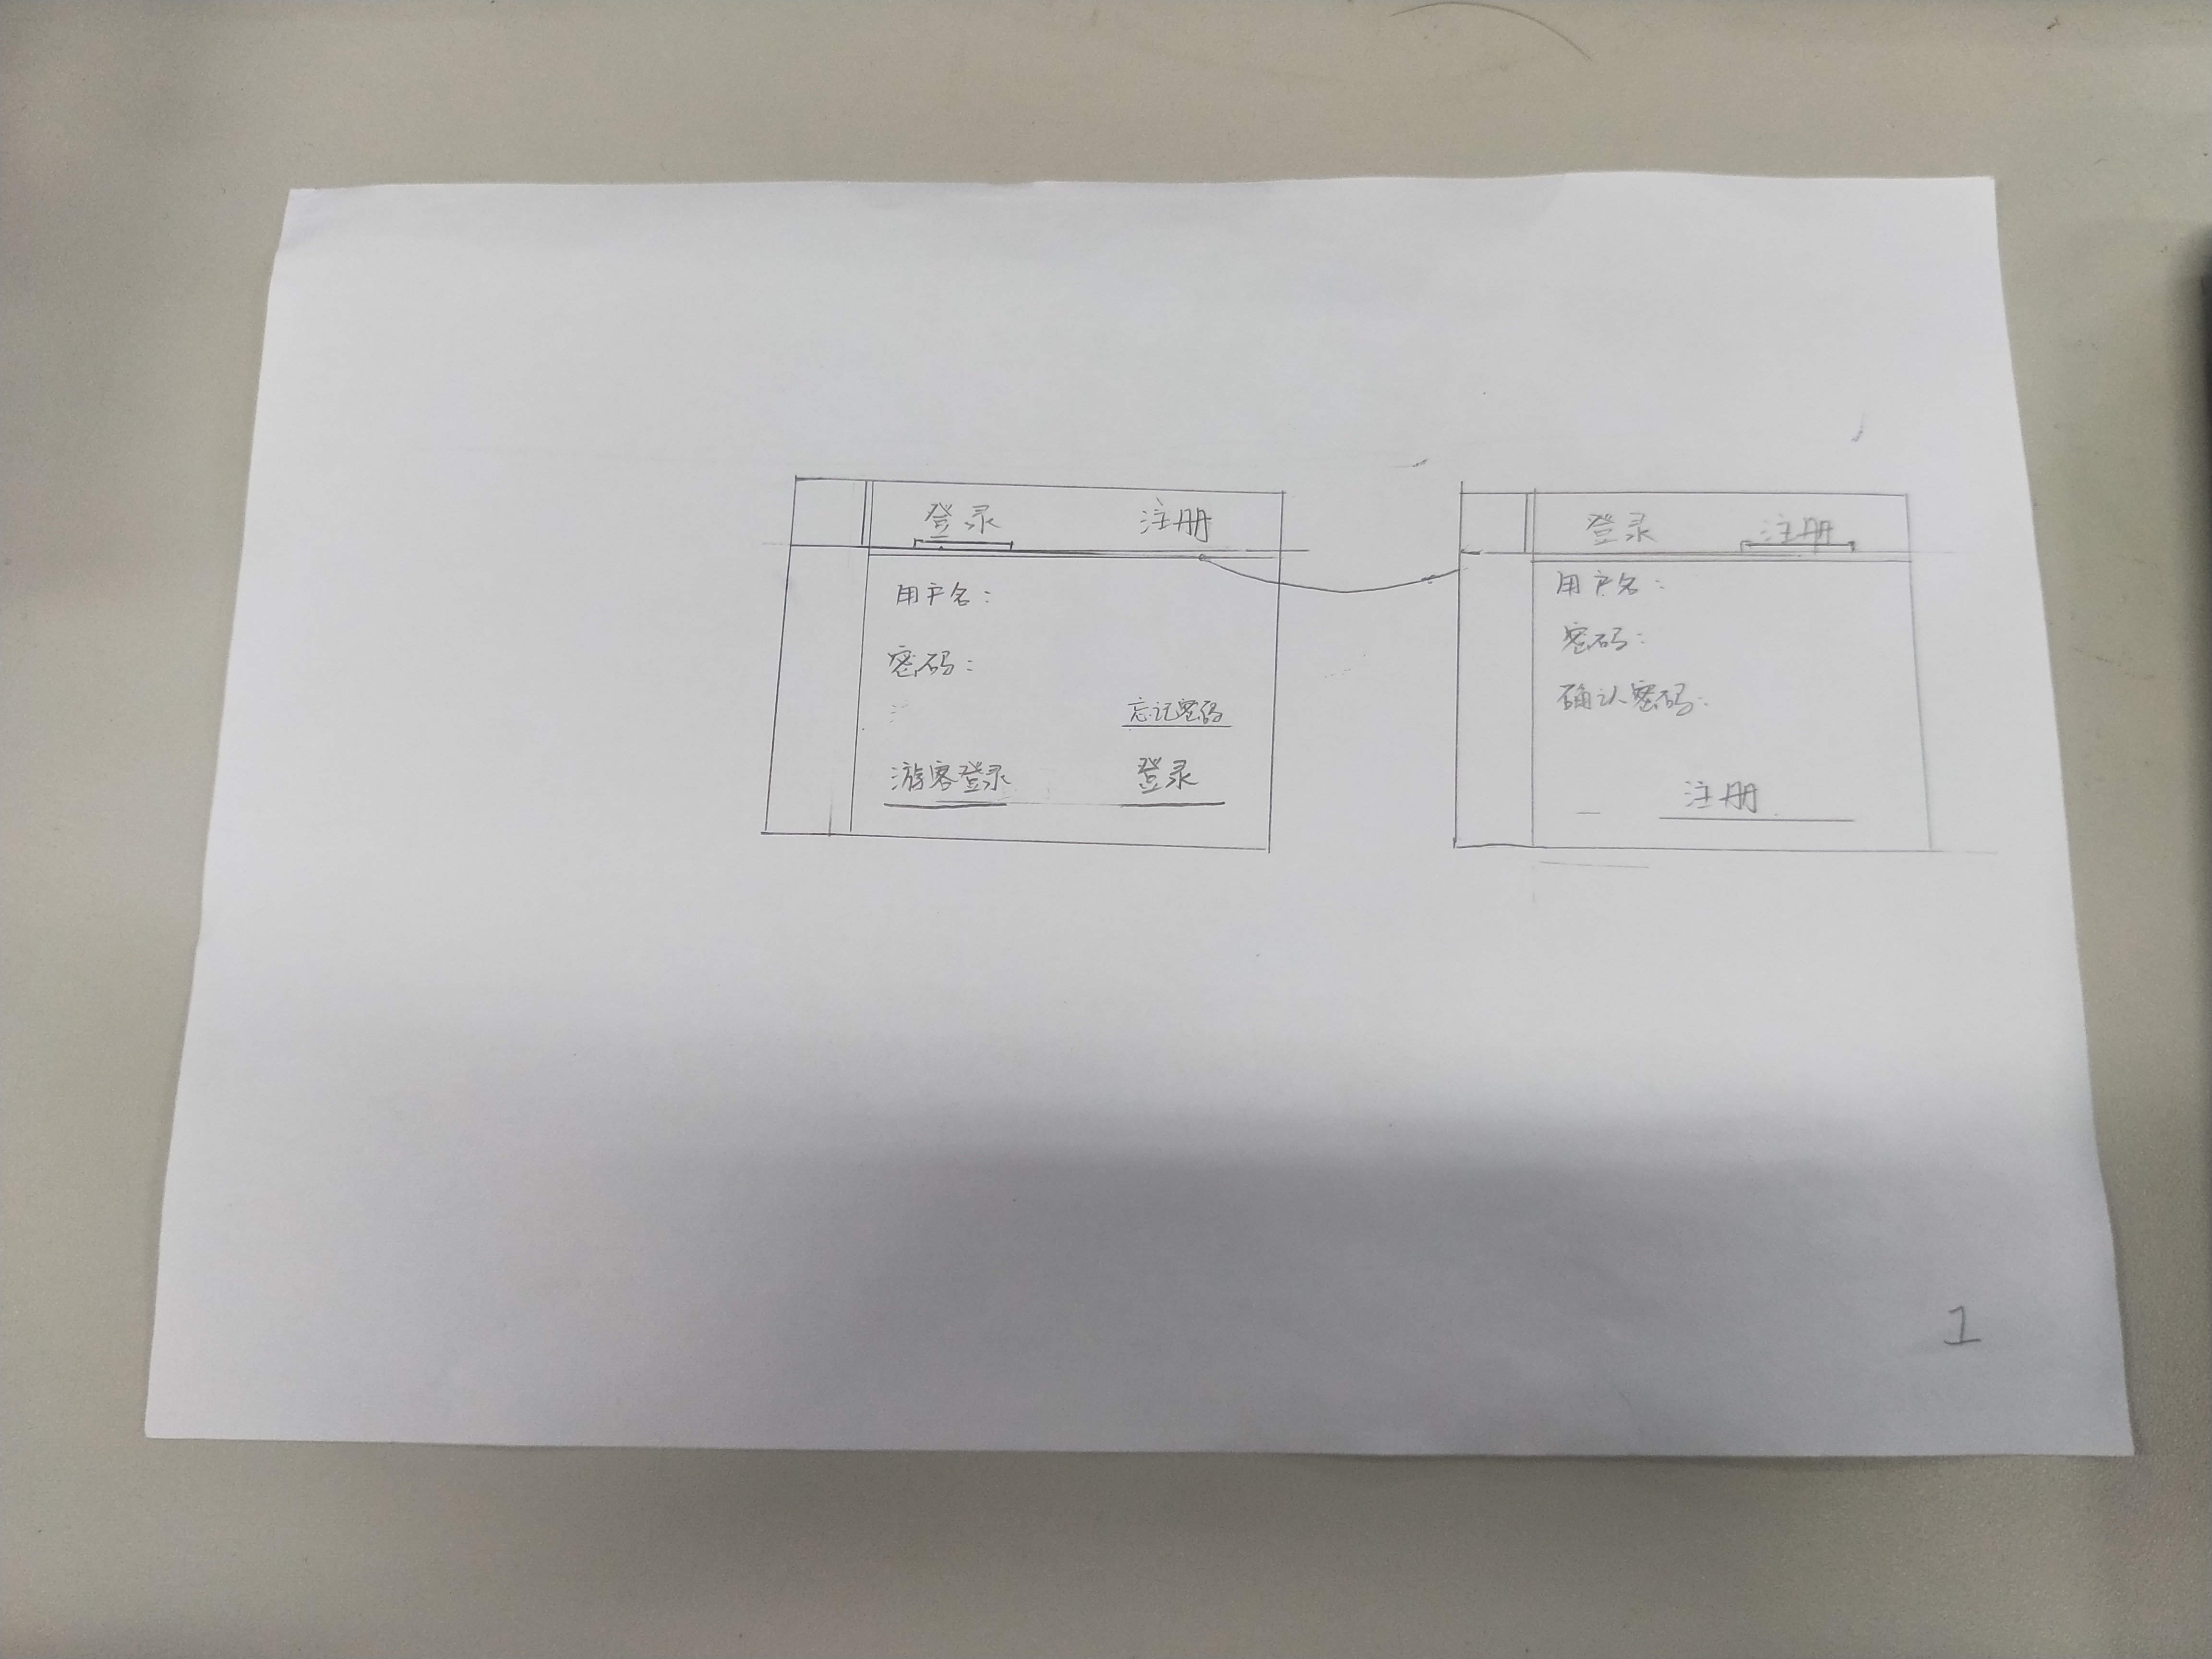 登录 注册
用户名：
密码：
忘记密码
游客登录 登录
登录 注册
用户名：
密码：
确认密码：
注册
1